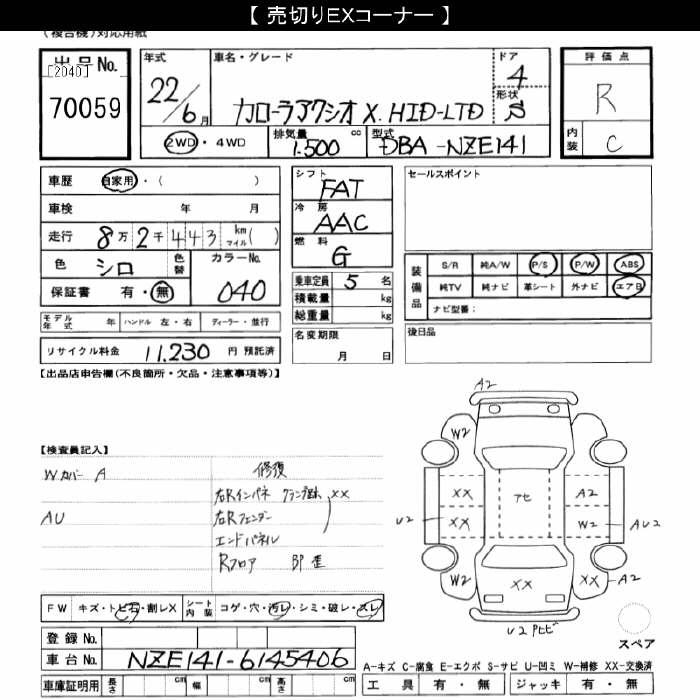 【 売切りEXコーナー 】
(複合機)対応用紙
出品No. [2040] 70059
年式 22/6月
車名・グレード カローラアクシオ X.HID-LTD
ドア 4
形状 S
評価点 R
内装 C
2WD・4WD
排気量 1.500 cc
型式 DBA-NZE141
車歴 自家用・( )
車検 年 月
走行 8万2千443 km マイル( )
色 シロ 色替
カラーNo. 040
保証書 有・無
モデル年式 年 ハンドル 左・右 ディーラー・並行
リサイクル料金 11,230 円 預託済
シフト FAT
冷房 AAC
燃料 G
乗車定員 5 名
積載量 kg
総重量 kg
名変期限 月 日
セールスポイント
装備品
S/R 純A/W P/S P/W ABS
純TV 純ナビ 革シート 外ナビ エアB
ナビ型番:
後日品
【出品店申告欄(不良箇所・欠品・注意事項等)】
【検査員記入】
Wカバー A
AU
修復
右Rインパネ XX
右Rフェンダー
エンドパネル
Rフロア
A2
W2
XX
アセ
A2
U2
XX
W2
AU2
W2
XX
XX
A2
U2
スペア
FW キズ・トビ石・割レX シート内装 コゲ・穴・汚レ・シミ・破レ・スレ
登録No.
車台No. NZE141-6145406
車庫証明用 長さ cm 幅 cm 高さ cm
A-キズ C-腐食 E-エクボ S-サビ U-凹ミ W-補修 XX-交換済
工具 有・無 ジャッキ 有・無